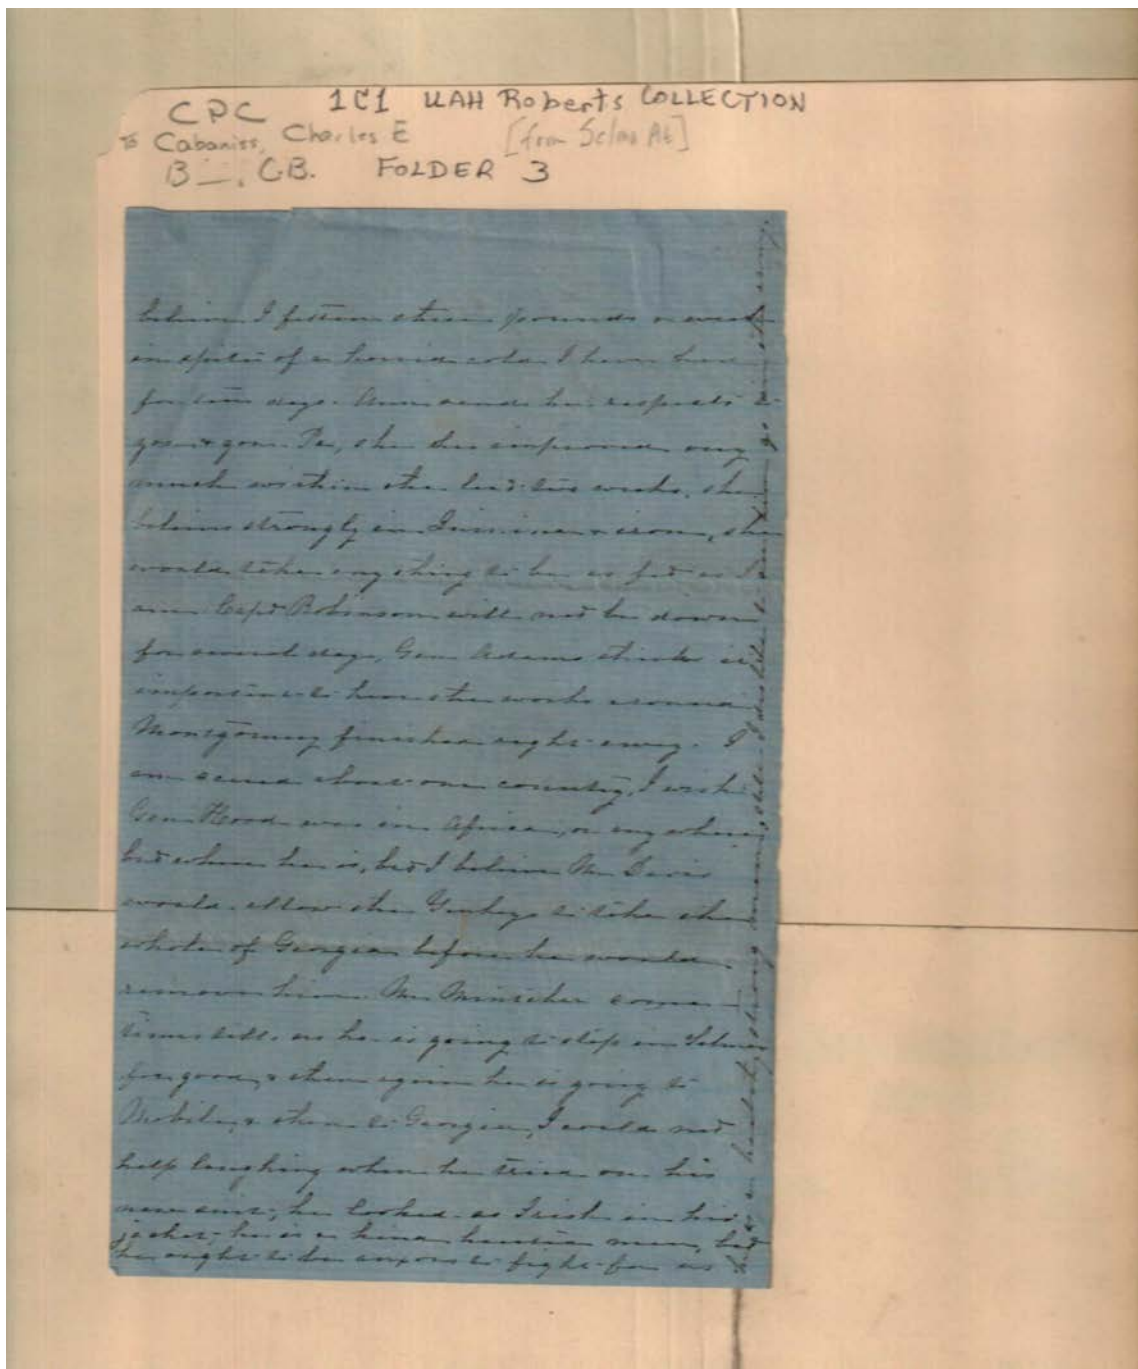 CPC 1C1 UAH Roberts COLLECTION
To Cabaniss, Charles E [from Selma Al]
B—, CB. FOLDER 3
believe I fatten three pounds a week
in spite of a horrid cold I have had
for ten days. Ann sends her respects to
you & your Pa, she has improved very
much within the last two weeks, she
believes strongly in Quinine & iron, she
would take any thing to be as fat as I
am. Capt Robinson will not be down
for several days, Gen Adams thinks it
important to have the works around
Montgomery finished right away. I
am scared about our country, I wish
Gen Hood was in Africa, or any where
but where he is, but I believe Mr Davis
would allow the Yankeys to take the
whole of Georgia before he would
remove him. Mr Minticher some-
times tells us he is going to stop in Selma
for good, & then again he is going to
Mobile, & then to Georgia, I could not
help laughing when he tried on his
new suit, he looked so Irish in his
jacket, he is a kind hearted man, but
he ought to be anxious to fight for us
he is a healthy, strong man, still I dislike to see him go in the army.